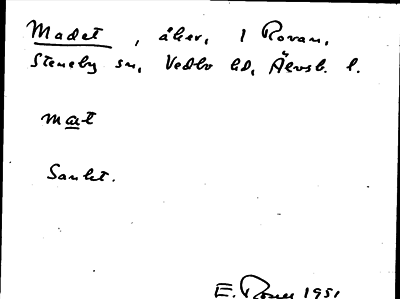 Madet, åker, 1 Rovan,
Steneby sn, Vedbo hd, Älvsb. l.
mat
Sankt.
E. 1951